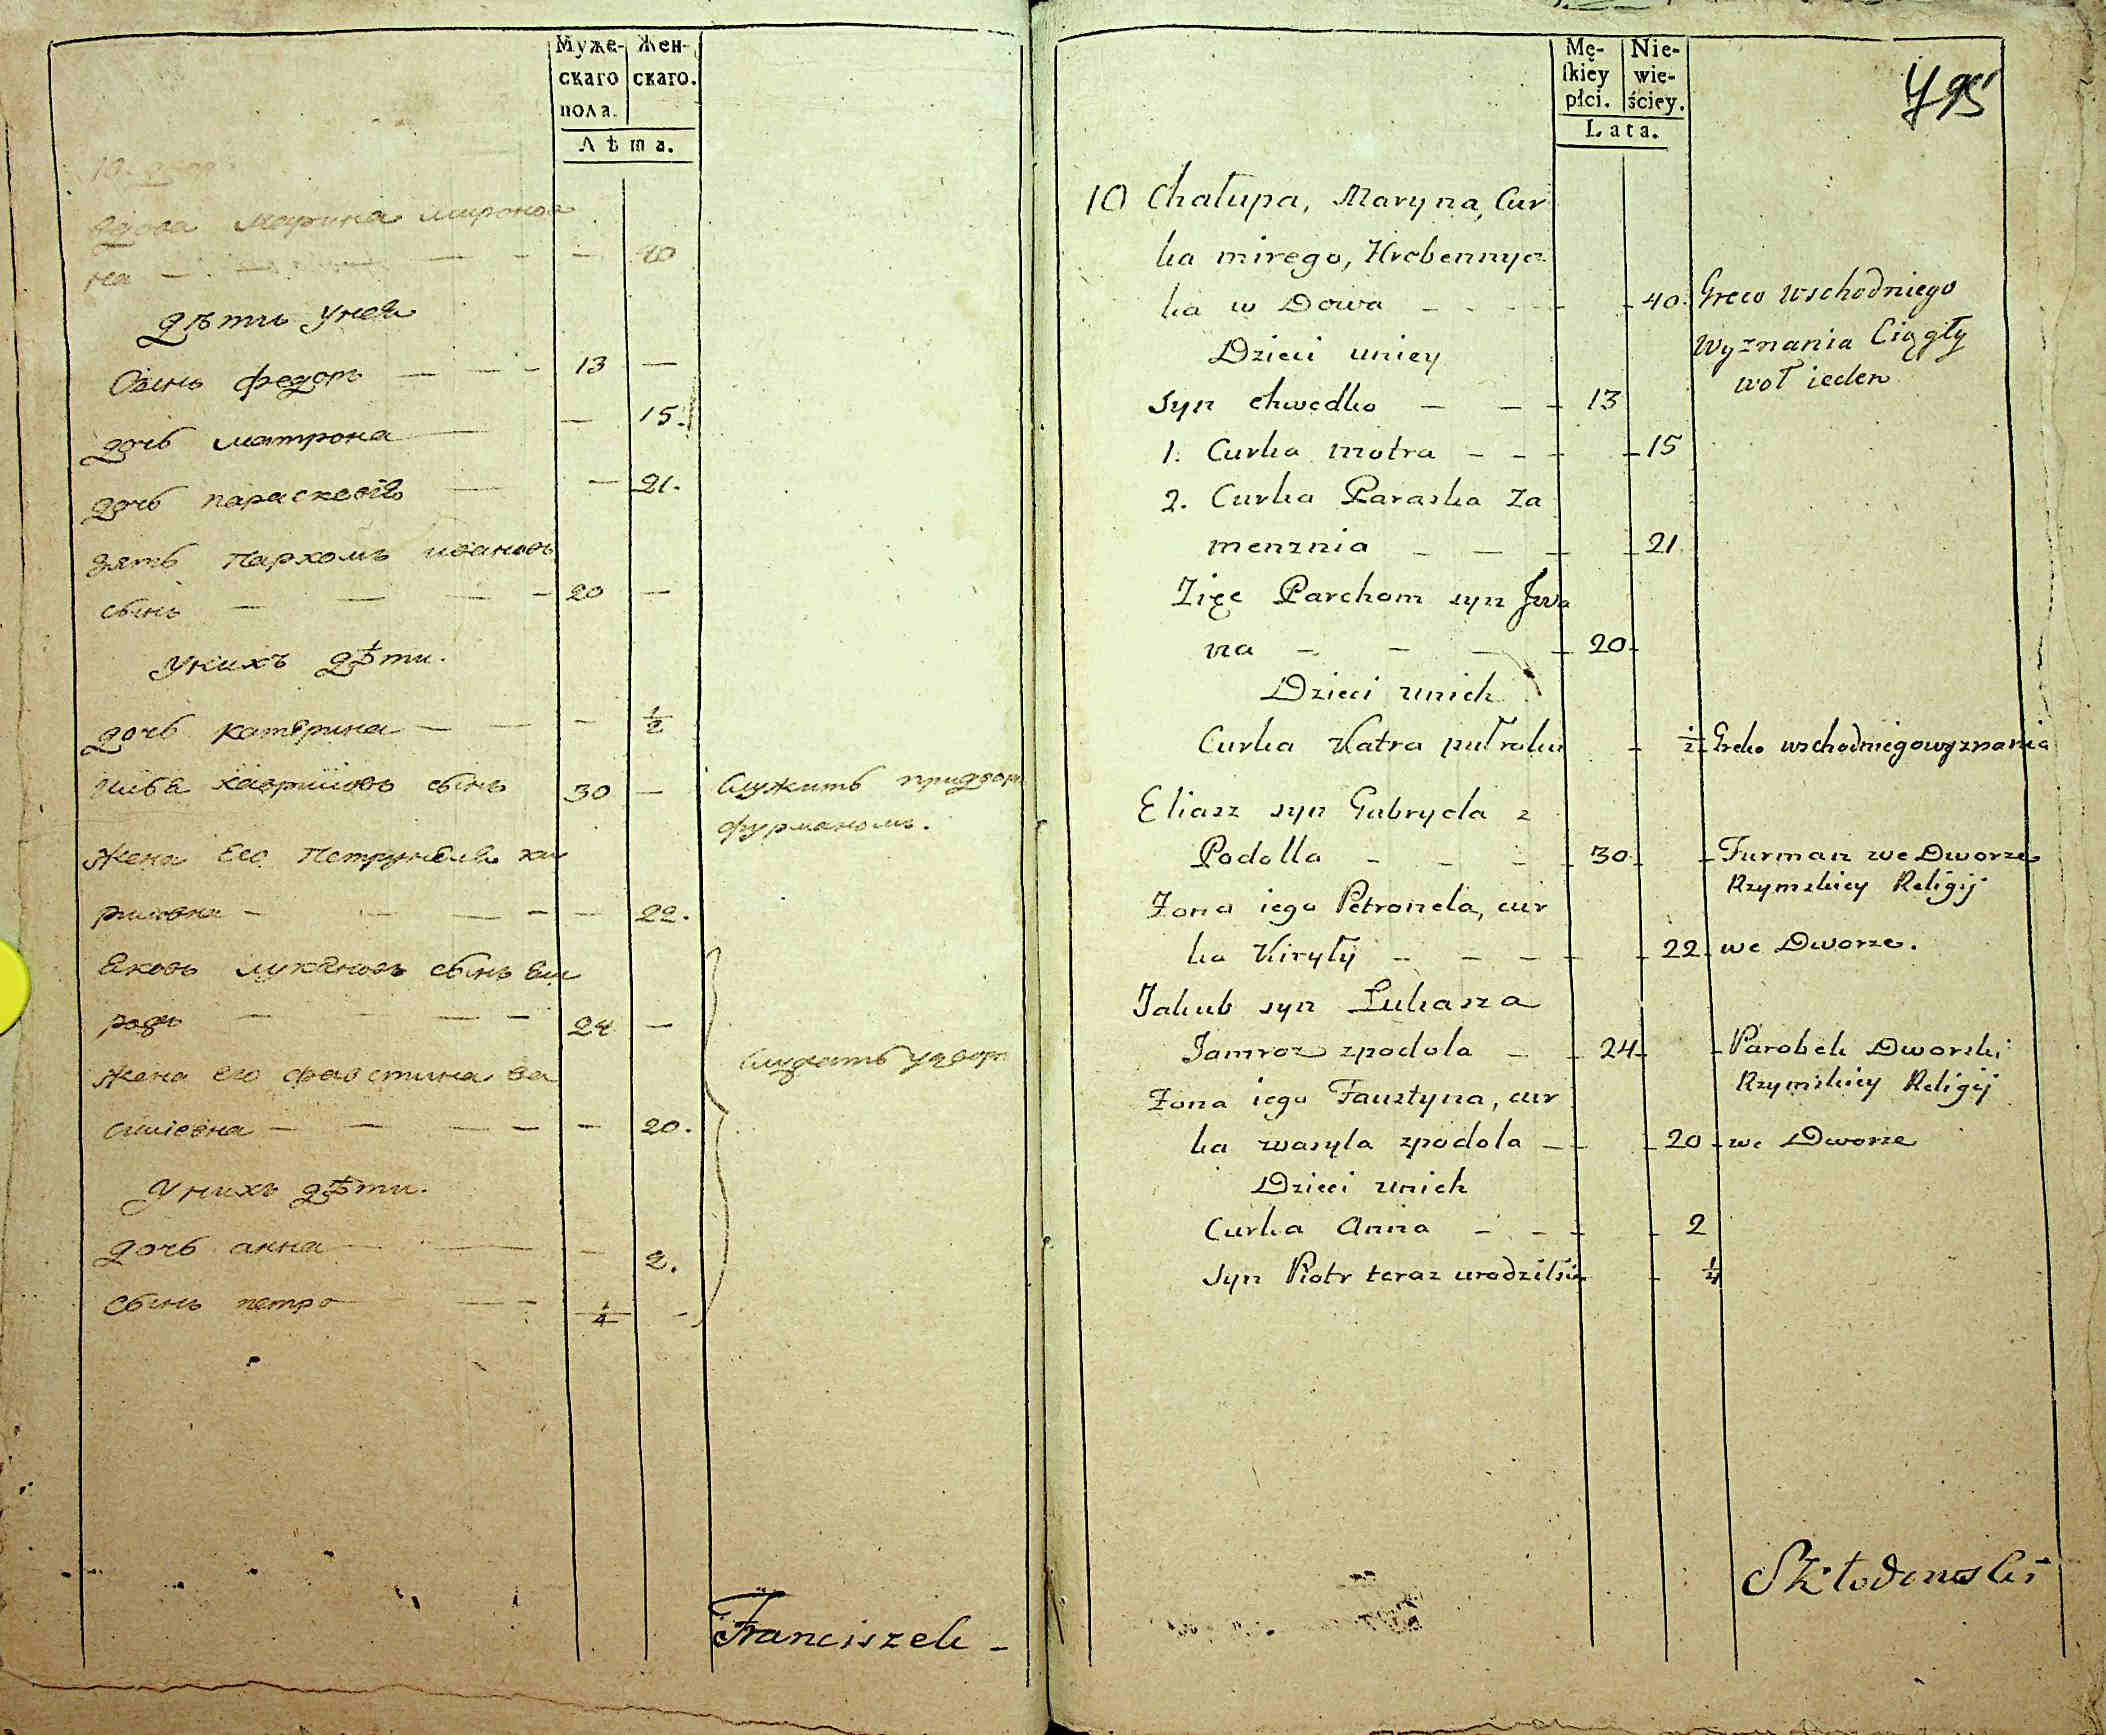 Муже-
скаго
пола.
Жен-
скаго.
Лѣта.
вдова марина миронов
на — — — — 40
дѣти унея
Сынъ федоръ — — — 13 —
дочь матрона — — 15.
дочь параскевія — — 21.
зять пархомъ ивановъ
сынъ — — — — 20 —
унихъ дѣти.
дочь катерина — — — 1/2
сынъ 30 — Служитъ придвор
фурманомъ.
жена его Петрунеля ки
риловна — — — — — 22.
Яковъ сынъ
— — — 24 —
жена его фавстина ва
силіевна — — — — — 20.
Служатъ удвор
унихъ дѣти.
дочь анна — — — 2.
Сынъ петро — — — 1/4 -
Franciszek -
Mę-
ſkiey
płci.
Nie-
wie-
ściey.
Lata.
795
10 Chałupa, Maryna, Cur
ka mirego, Hrebennycz
ka w Dowa — - - - - 40. Greco wschodniego
Dzieci uniey Wyznania Ciągły
woł ieden
Syn chwedko — — — 13
1. Curka motra — — - - 15
2. Curka Paraska Za
menznia — — — - 21
Zięc Parchom syn Jwa
na — — — — 20
Dzieci unich
Curka Katra puł roku - 1/2 Greko wschodniego wyznania
Eliasz syn Gabryela z
Podolla — — — — 30 - Furman we Dworze
Rzymskiey Religij
Zona iego Petronela, cur
ka Kiryły — — — — - 22 we Dworze.
Jakub syn Łukasza
Jamroz zpodola — - 24 - Parobek Dworski
Rzymskiey Religij
Zona iego Faustyna, cur
ka wasyla zpodola — - - 20 - we Dworze
Dzieci unich
Curka Anna — — - - 2
Syn Piotr teraz urodziłsie - 1/4
Skłodowski